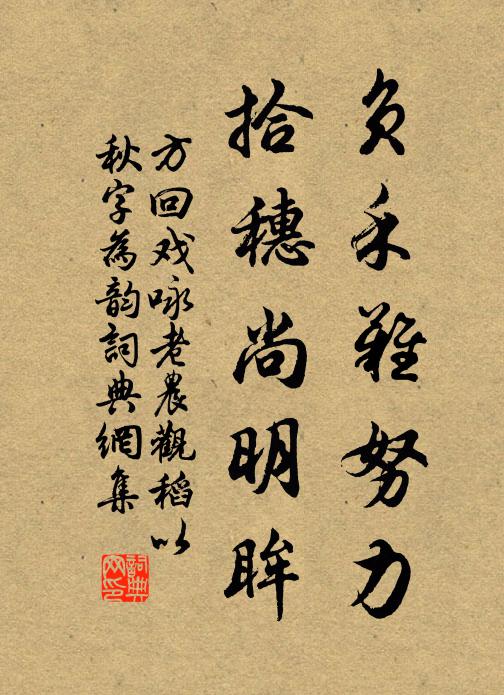 负禾难努力
拾穗尚明眸
方回戏咏老農觀稻以
秋字為韵詞典網集
詞典网印